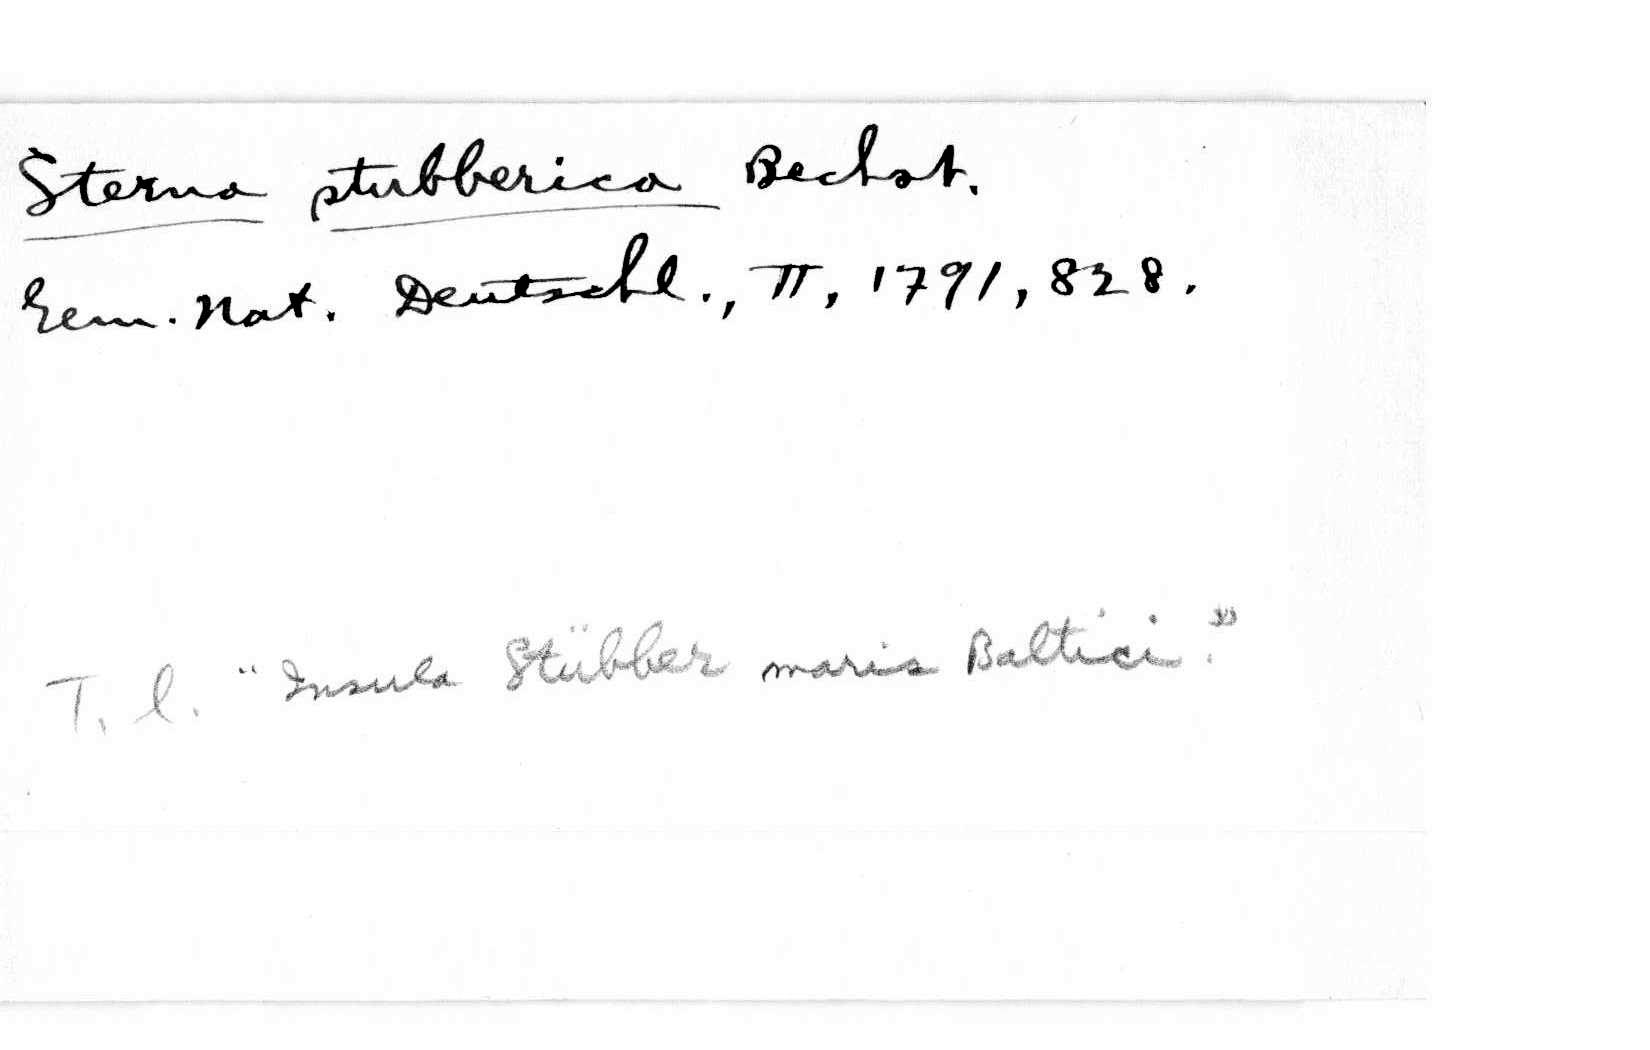 Sterna stubberica Bechst.
Gem. Nat. Deutschl., II, 1791, 828.
T. l. "Insula Stübber maris Baltici."